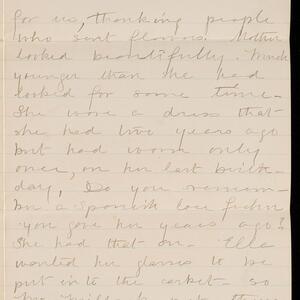 for us, thanking people
who sent flowers. Mother
looked beautifully. Much
younger than she had
looked for some time.
She wore a dress that
she had two years ago
but had worn only
once, on her last birth-
day, Do you remem-
ber a Spanish lace fichu
you gave her years ago?
She had that on. Ella
wanted her glasses to be
put into the casket - so